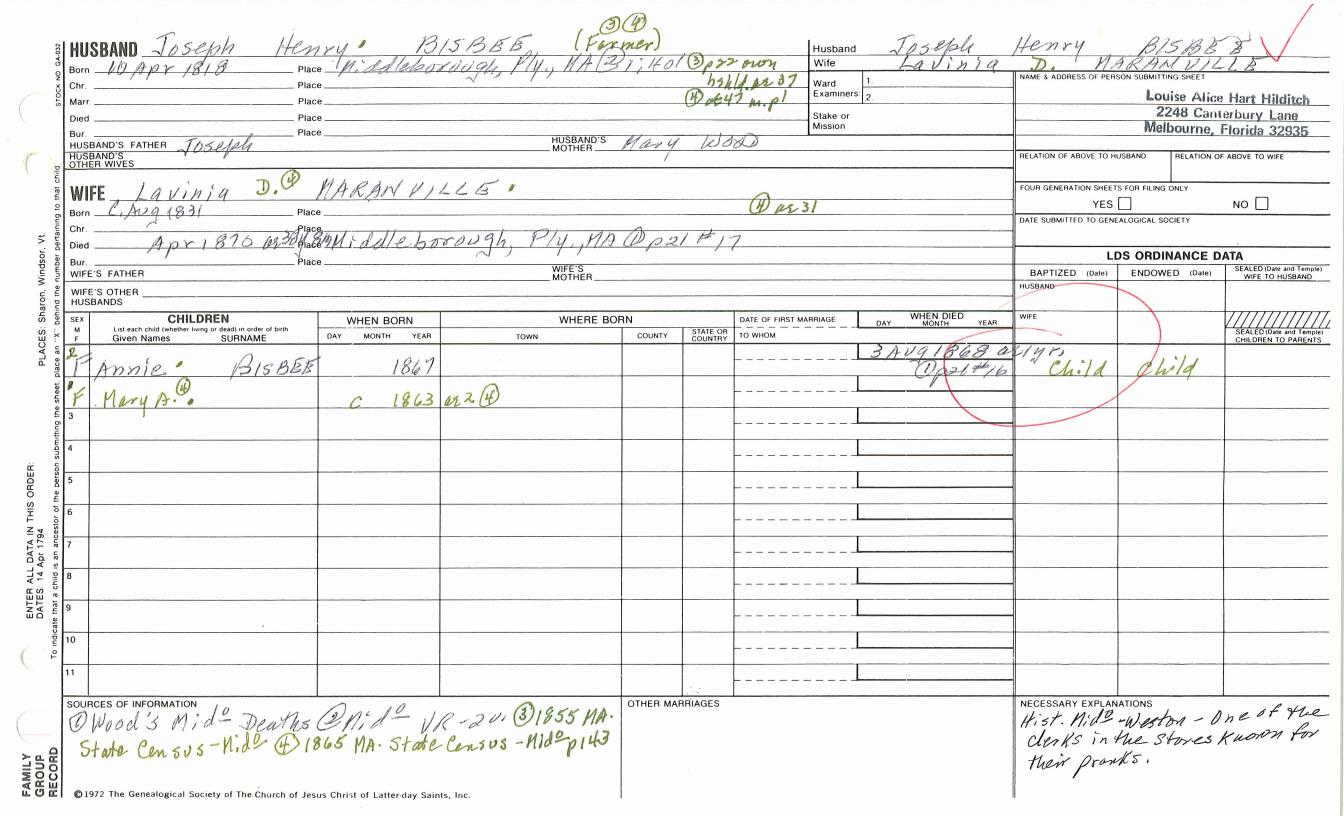 ③ ④
HUSBAND Joseph Henry BISBEE (Farmer)
Born 10 Apr 1818 Place Middleborough, Ply., MA ② 1:401 ③ p22 own
hshld. ae 37
Chr. Place
Marr. Place ④ ae 47 m. p1
Died Place
Bur. Place
HUSBAND'S FATHER Joseph HUSBAND'S MOTHER Mary WOOD
HUSBAND'S OTHER WIVES
WIFE Lavinia D. ④ MARANVILLE
Born C. Aug 1831 Place ④ ae 31
Chr. Place
Died Apr 1870 Place Middleborough, Ply., MA ① p21 #17
Bur. Place
WIFE'S FATHER WIFE'S MOTHER
WIFE'S OTHER HUSBANDS
Husband Joseph Henry BISBEE
Wife Lavinia D. MARANVILLE
Ward Examiners 1. 2.
Stake or Mission
NAME & ADDRESS OF PERSON SUBMITTING SHEET
Louise Alice Hart Hilditch
2248 Canterbury Lane
Melbourne, Florida 32935
RELATION OF ABOVE TO HUSBAND RELATION OF ABOVE TO WIFE
FOUR GENERATION SHEETS FOR FILING ONLY
YES NO
DATE SUBMITTED TO GENEALOGICAL SOCIETY
LDS ORDINANCE DATA
BAPTIZED (Date) ENDOWED (Date) SEALED (Date and Temple) WIFE TO HUSBAND
HUSBAND
WIFE
SEALED (Date and Temple) CHILDREN TO PARENTS
SEX M F CHILDREN WHEN BORN WHERE BORN DATE OF FIRST MARRIAGE WHEN DIED
List each child (whether living or dead) in order of birth
Given Names SURNAME DAY MONTH YEAR TOWN COUNTY STATE OR COUNTRY TO WHOM DAY MONTH YEAR
2 F Annie BISBEE 1867 3 Aug 1868 ae 1 yr.
① p21 #16 Child Child
F Mary A. ④ c 1863 ae 2 ④
3
4
5
6
7
8
9
10
11
SOURCES OF INFORMATION
① Wood's Midº Deaths ② Midº VR-2v. ③ 1855 MA.
State Census-Midº ④ 1865 MA. State Census-Midº p143
OTHER MARRIAGES
NECESSARY EXPLANATIONS
Hist. Midº-Weston-One of the
clerks in the stores known for
their pranks.
©1972 The Genealogical Society of The Church of Jesus Christ of Latter-day Saints, Inc.
STOCK NO. GA-032
PLACES: Sharon, Windsor, Vt.
ENTER ALL DATA IN THIS ORDER:
DATES: 14 Apr 1794
To indicate that a child is an ancestor of the person submitting the sheet, place an "X" behind the number pertaining to that child
FAMILY
GROUP
RECORD